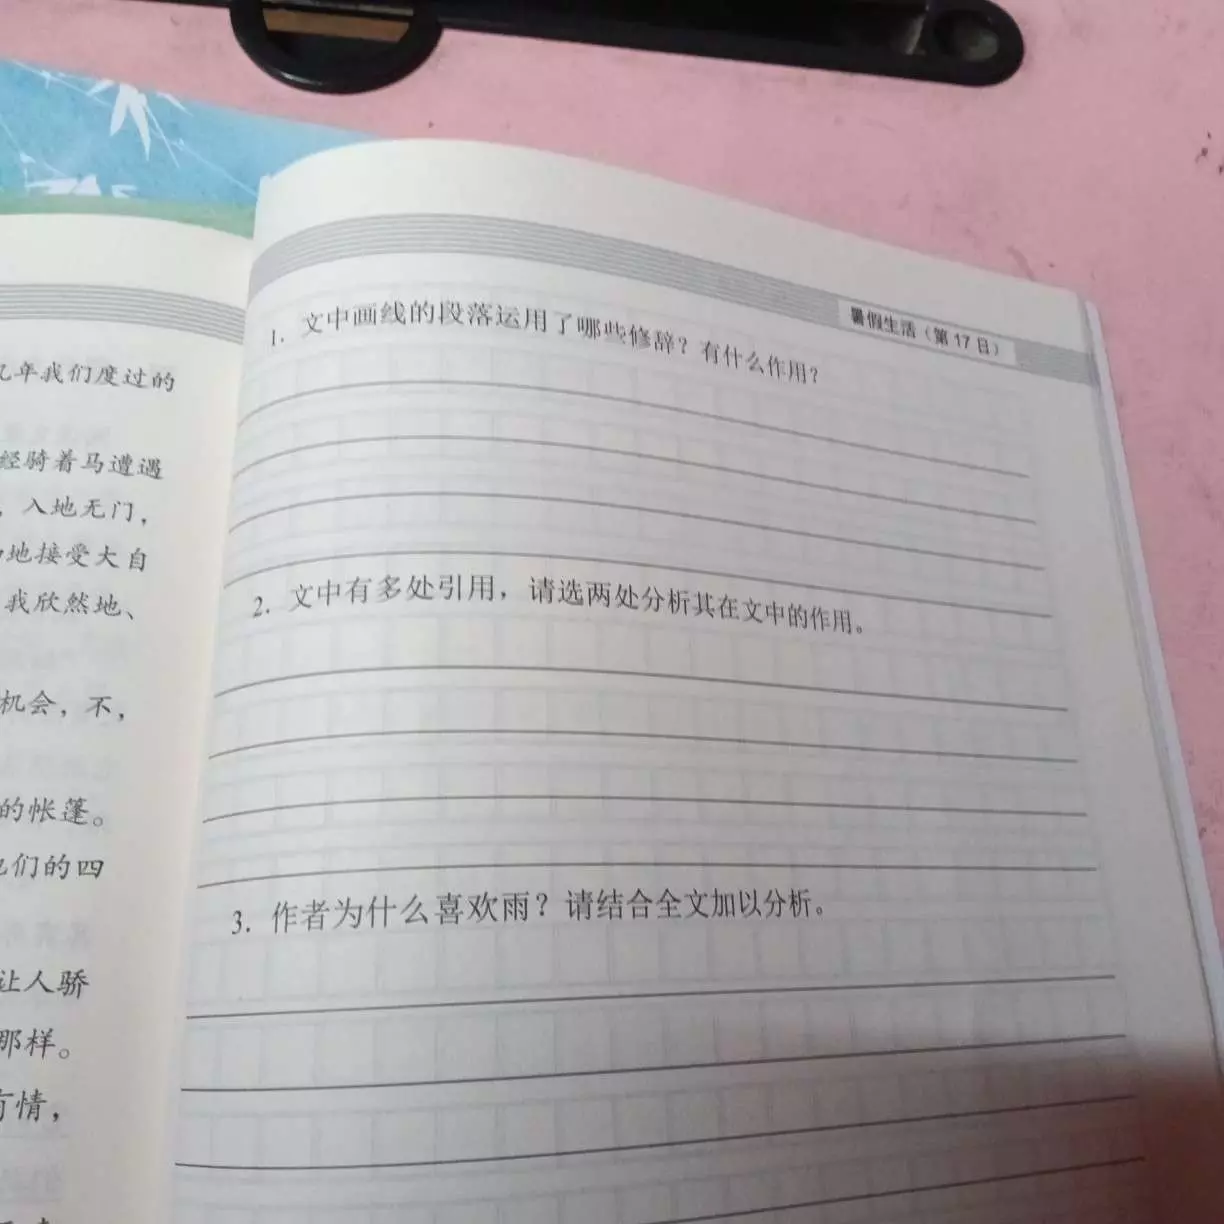 年我们度过的
经骑着马遭遇
，入地无门，
地接受大自
我欣然地、
机会，不，
的帐篷。
们的四
让人骄
那样。
情，
暑假生活（第 17 日）
1. 文中画线的段落运用了哪些修辞？有什么作用？
2. 文中有多处引用，请选两处分析其在文中的作用。
3. 作者为什么喜欢雨？请结合全文加以分析。